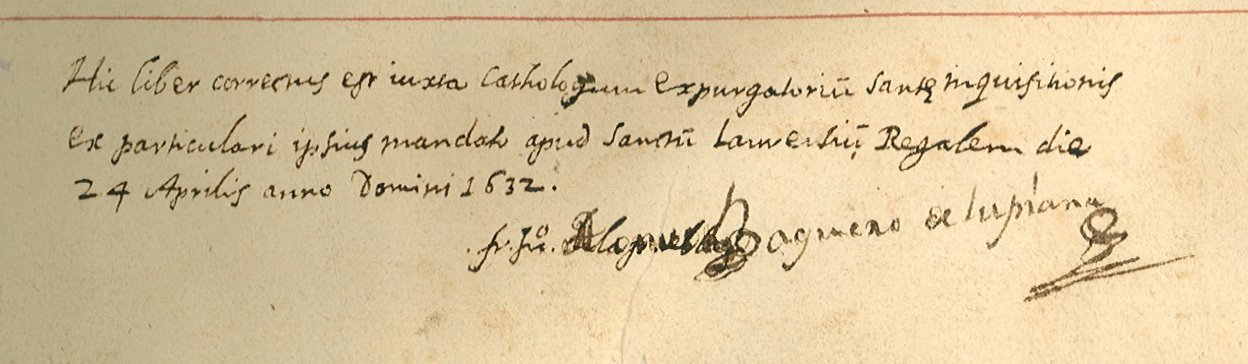 Hic liber correctus est iuxta Cathologum expurgatoriũ Sanctę inquisitionis
ex particulari ipsius mandato apud Sanctũ Laurentiũ Regalem die
24 Aprilis anno Domini 1632.
fr. Juº. de lupiana